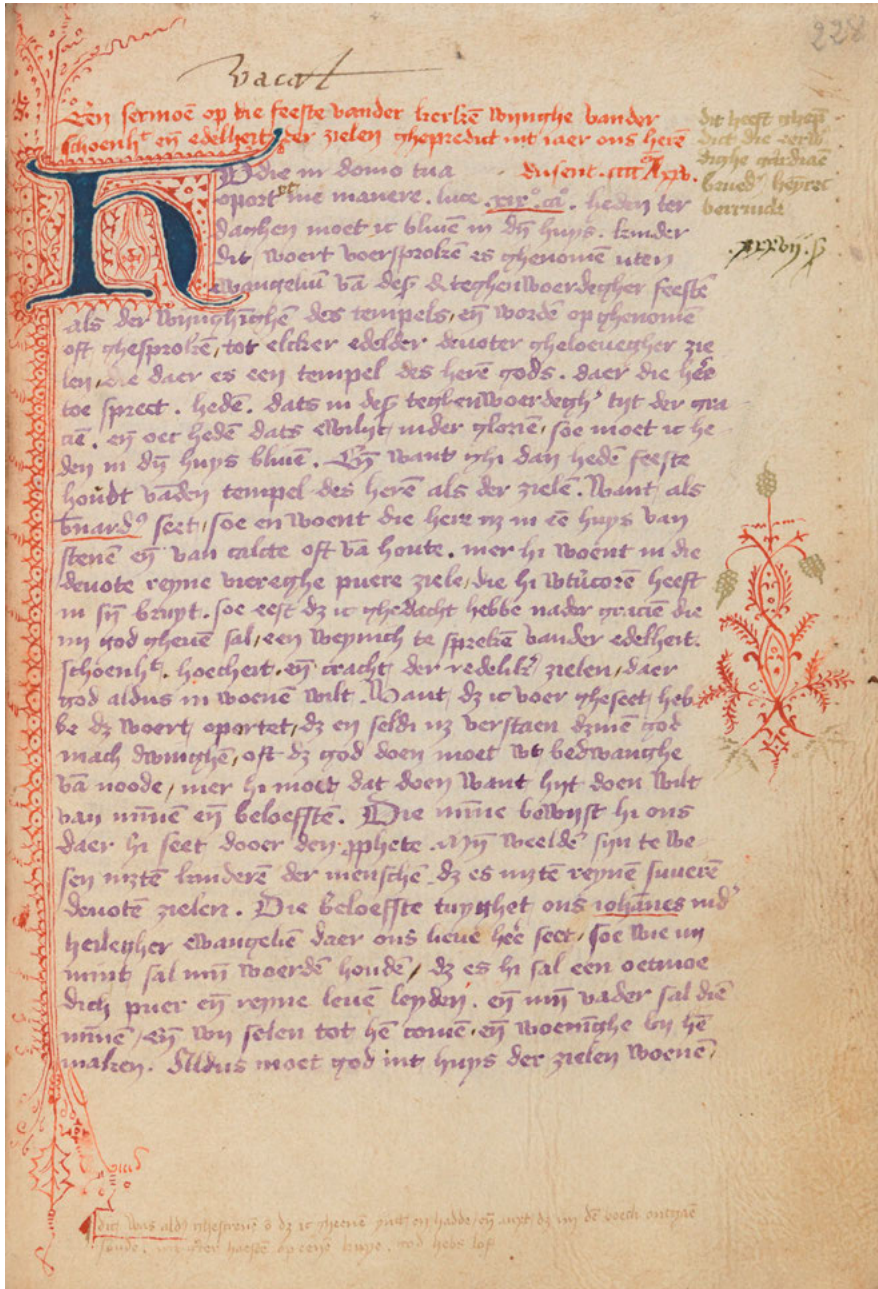 228
vacat
Een sermoē op die feeste vander kerkē wijnghe vander
schoenhᵗ eñ edelheit der zielen ghepredict int iaer ons herē
dusent. cccc lxxv.
dit heeft ghep̄
dict die eerw
dighe gardiaē
brued' heyric
.xxxvij. s̄
Hodie in domo tua
oportet me manere. luce .xixº. caº. heden ter
daghen moet ic bliuē in dȳ huys. kinder
dit woert voersprokē es ghenomē uten
ewangeliū vā des̄ teghenwoerdegher feestē
als der wijnghinghē des tempels, eñ wordē op ghenomē
oft ghesprokē, tot elcker edelder deuoter gheloeuegher zie
len, die daer es een tempel des herē gods. daer die hē̄e
toe sprect. heden. dats in des̄ teghenwoerdegh' tijt der gra
ciē. eñ oec hedē dats ewilijc inder gloriē, soe moet ic he
den in dȳ huys bliuē. Eñ want ghi dan hedē feeste
houdt vāden tempel des herē als der zielen. Want als
b̄nardꝰ seet, soe en woent die here nz in eē huys van
stenē eñ van calcke oft vā houte. mer hi woent in die
deuote reyne viereghe puere ziele, die hi wtūcorē heeft
in sȳ bruyt. soe eest dz ic ghedacht hebbe nader graciē die
mi god gheuē sal, een weynich te sprekē vander edelheit.
schoenhᵗ. hoecheit. eñ cracht der redelikʳ zielen, daer
god aldus in woenē wilt. Want dz ic voer gheseet heb
be dz woert oportet, dz en seldi nz verstaen dzmē god
mach dwinghē, oft dz god doen moet wt bedwanghe
vā noode, mer hi moet dat doen want hijt doen wilt
van mīnen eñ beloefftē. Die mīne bewijst hi ons
daer hi seet dooer den ꝓphete. Mȳ weeldē sijn te we
sen metē kinderē der menschē dz es metē reynē suuerē
deuotē zielen. Die beloeffte tuyghet ons iohānes ind'
heilegher ewangeliē daer ons lieue hē̄e seet, soe wie mi
mint sal mīn woerdē houdē, dz es hi sal een oetmoe
dich puer eñ reyne leuē leyden. eñ mīn vader sal diē
mīnen, eñ wij selen tot hē comē, eñ woenīghe bij hē
maken. Aldus moet god int huys der zielen woenē,
dit was aldꝰ ghescreuē dz ic gheenē en hadde, eñ dz mi dē boeck
god hebs lof